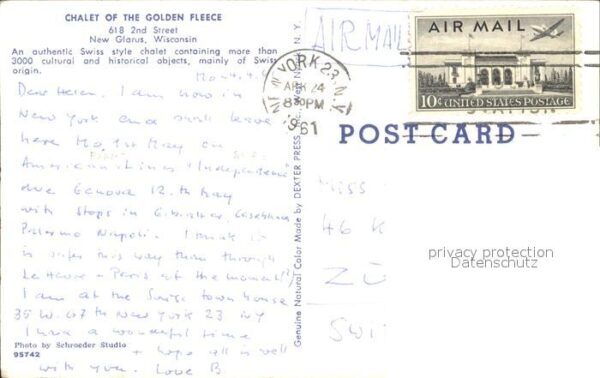 CHALET OF THE GOLDEN FLEECE
618 2nd Street
New Glarus, Wisconsin
An authentic Swiss style chalet containing more than
3000 cultural and historical objects, mainly of Swiss
origin.
Dear Helen. I am now in
New York and shall leave
here Mo. 1st May on
American Lines "Independence"
due Genova 12. th May
with stops in Gibraltar, Casablanca
Palermo Napoli. I think it
is safer this way than through
Le Havre - Paris at the moment(?)
I am at the Swiss town house
35 W. 67 th New York 23 NY
I have a wonderful time
+ hope all is well
with you. Love B.
Photo by Schroeder Studio
95742
Genuine Natural Color Made by DEXTER PRESS, Inc., West Nyack, N. Y.
AIR MAIL
NEW YORK 23 N.Y.
APR 24
8 30 PM
1961
STATION
AIR MAIL
10¢ UNITED STATES POSTAGE
POST CARD
MISS
46 K
ZÜ
SWIT
privacy protection
Datenschutz